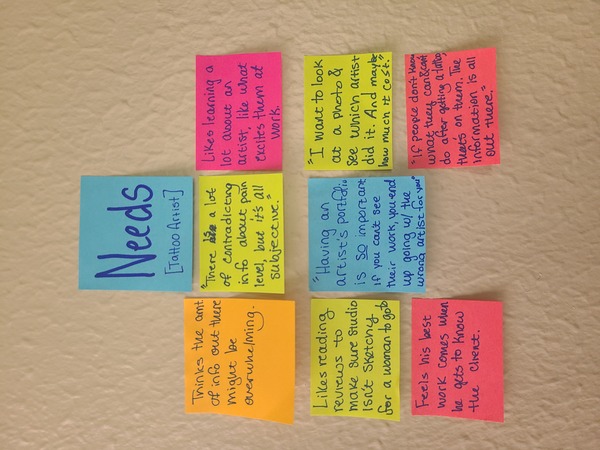 Needs
[Tattoo Artist]
Thinks the amt
of info out there
might be
overwhelming.
"There is a lot
of contradicting
info about pain
level, but it's all
subjective."
Likes learning a
lot about an
artist, like what
excites them at
work.
Likes reading
reviews to
make sure studio
isn't sketchy
for a woman to go to
"Having an
artist's portfolio
is SO important
if you can't see
their work, you end
up going w/ the
wrong artist for you"
"I want to look
at a photo &
see which artist
did it. And maybe
how much it cost."
Feels his best
work comes when
he gets to know
the client.
"If people don't know
what they can & can't
do after getting a tattoo,
that's on them. The
information is all
out there."